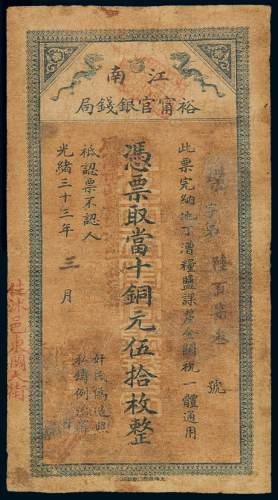 江南
裕甯官銀錢局
字第 陸百柒叁 號
此票完納地丁漕糧鹽課釐金關稅一體通用
憑票取當十銅元伍拾枚整
祗認票不認人
光緒三十三年 三 月
奸民偽造照
私鑄例治罪